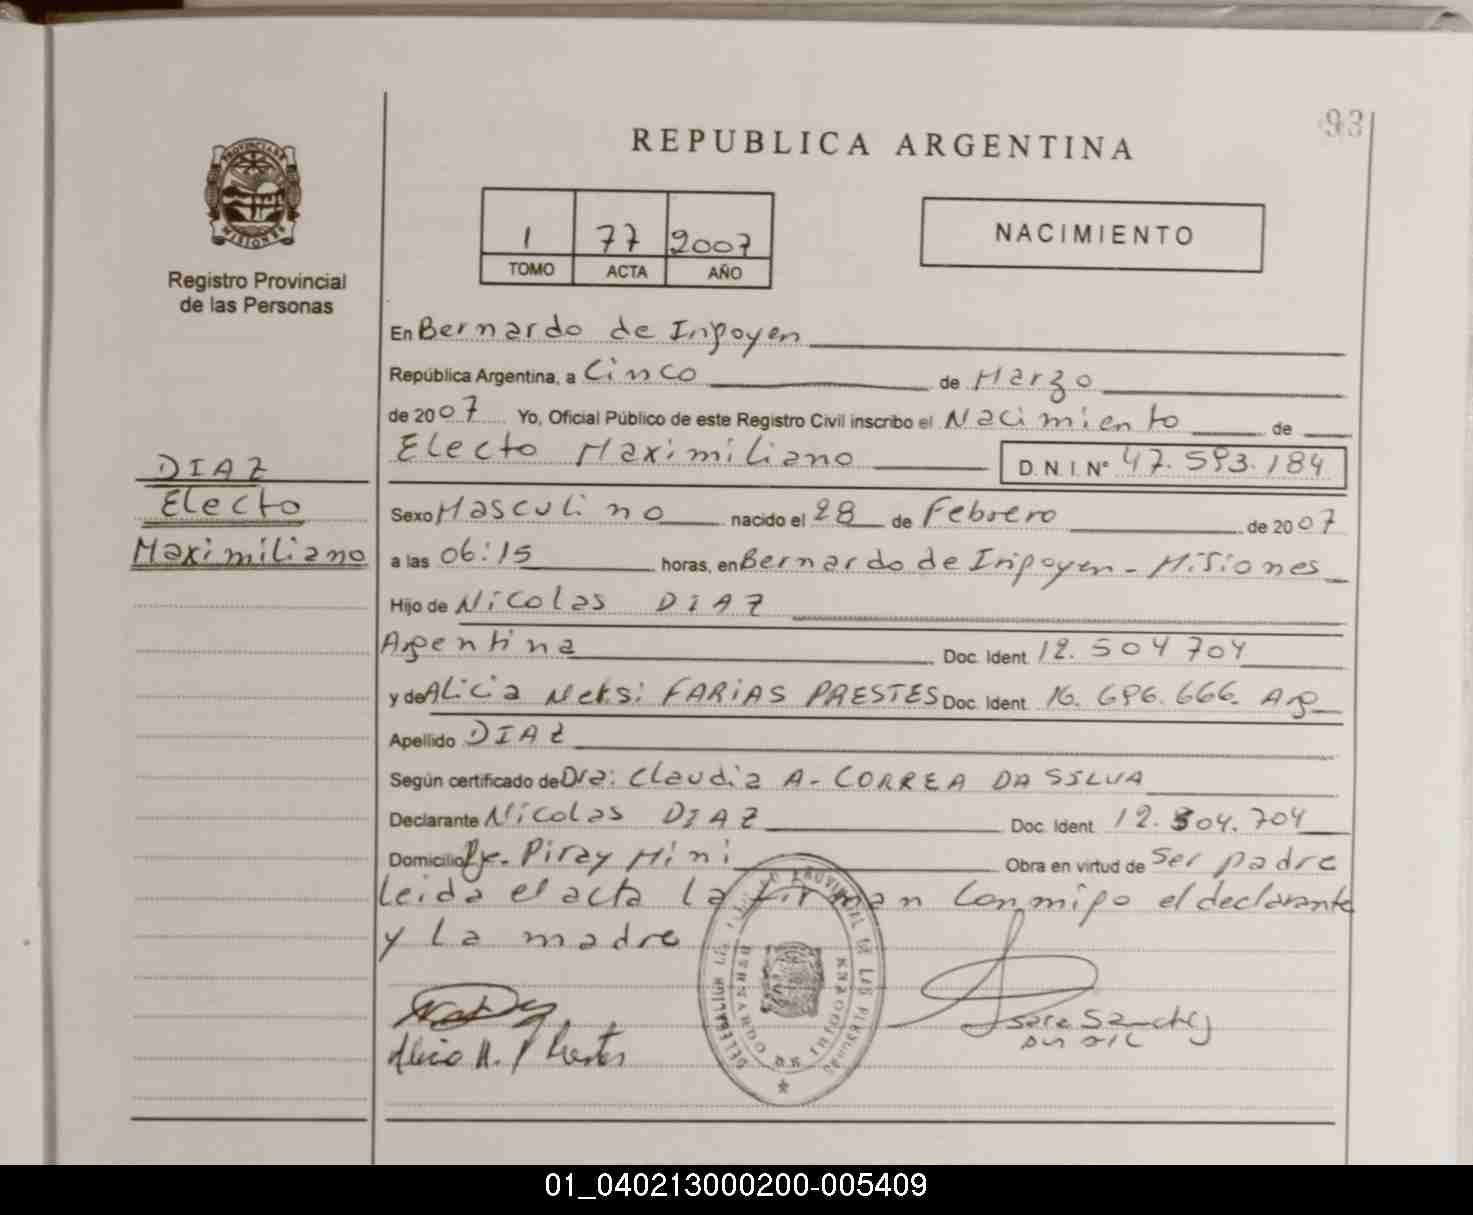 93
REPUBLICA ARGENTINA
PROVINCIA DE
MISIONES
Registro Provincial
de las Personas
1 77 2007
TOMO ACTA AÑO
NACIMIENTO
En Bernardo de Irigoyen
República Argentina, a Cinco de Marzo
de 2007 Yo, Oficial Público de este Registro Civil inscribo el Nacimiento de
Electo Maximiliano D. N. I. Nº 47.593.184
DIAZ
Electo
Maximiliano
Sexo Masculino nacido el 28 de Febrero de 2007
a las 06:15 horas, en Bernardo de Irigoyen - Misiones
Hijo de Nicolas DIAZ
Argentina Doc. Ident. 12.504704
y de Alicia Neksi FARIAS PRESTES Doc. Ident. 16.696.666. Arg
Apellido DIAZ
Según certificado de Dra: Claudia A- CORREA DA SILVA
Declarante Nicolas DIAZ Doc. Ident. 12.504.704
Domicilio Pje. Piray Mini Obra en virtud de Ser padre
leida el acta la firman Conmigo el declarante
y La madre
Alicia N. F Prestes
Sara Sanchez
01_040213000200-005409